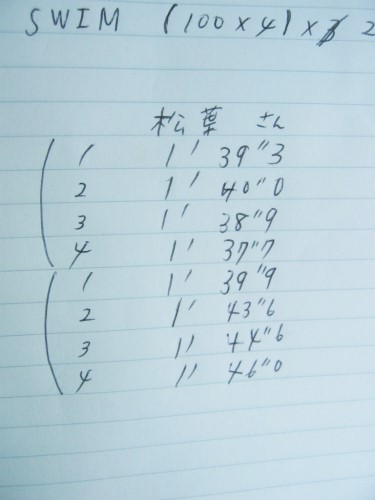 SWIM (100×4)× 2
松葉 さん
1 1' 39"3
2 1' 40"0
3 1' 38"9
4 1' 37"7
1 1' 39"9
2 1' 43"6
3 1' 44"6
4 1' 46"0